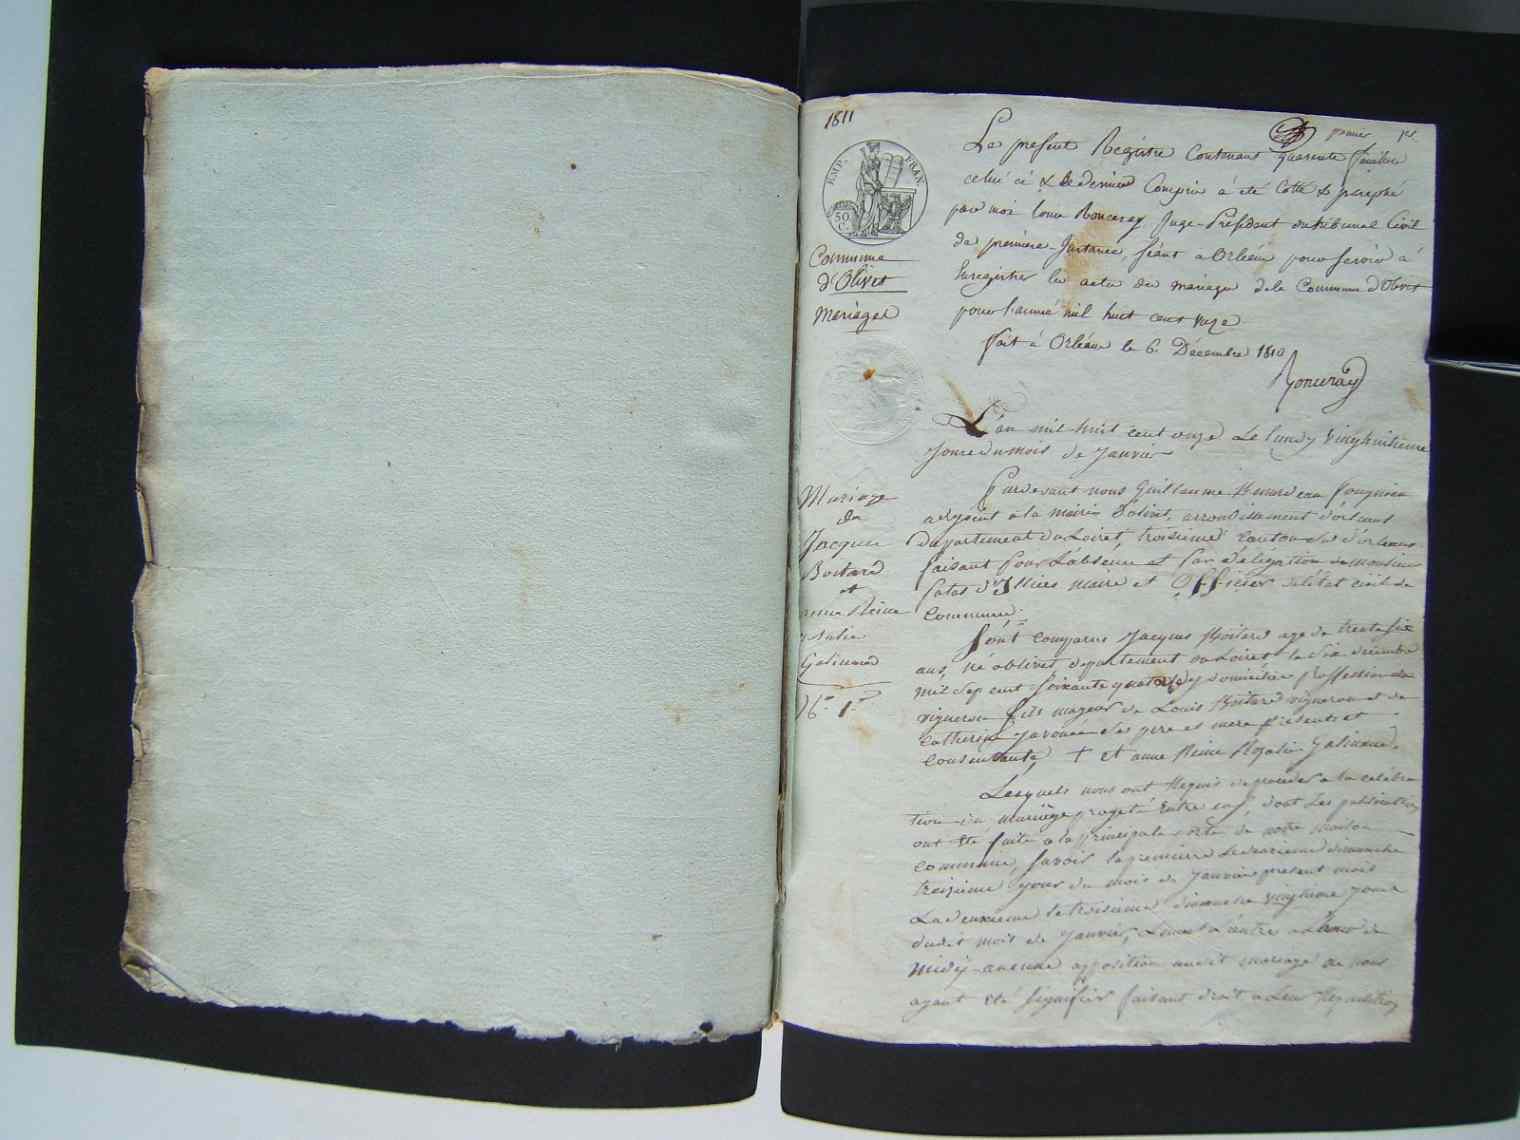 1811
premier
EMP. FRAN.
50
C.
Commune
d'Olivet
Mariages
Le present Registre Contenant quarente feuillets
celui ci & le dernier Compris à été Cotté & paraphé
par moi Louis Ronceray Juge-Président du tribunal Civil
de première Instance, séant à Orléans pour servir à
Enregistrer les actes de mariages de la Commune d'Olivet
pour l'année mil huit cent onze
fait à Orléans le 6. Décembre 1810
Ronceray
L'an mil huit cent onze Le lundy vingt huitieme
Jour du mois de Janvier
Mariage
de
Jacques
Boitard
et
anne Reine
Galineau
N° 1er
Pardevant nous Guillaume
adjoint à la mairie d'olivet, arrondissement d'orleans
departement du Loiret, troisieme Canton d'orleans
faisant pour L'absence et par délégation de monsieur
d'Illiers maire et Officier de létat civil de
Commune.
Sont comparus Jacques Boitard age de trente six
ans, né a olivet departement du Loiret le six decembre
mil sept cent soixante quatorze y domicilié proffession de
vigneron fils mageur de Louis Boitard vigneron et de
Catherine ses pere et mere présents et
consentants + et anne Reine Rosalie Galineau.
Lesquels nous ont Requis de proceder a la celebra
tion du mariage projeté entre eux, dont Les publications
ont été faite a la principale porte de notre maison
commune, savoir la premiere le dimanche
treizieme jour du mois de Janvier present mois
La deuxieme le troisieme dimanche vingtieme jour
dudit mois de Janvier, a heure de
midy aucune opposition audit mariage ne nous
ayant été signifiée faisant droit a Leur Requisition